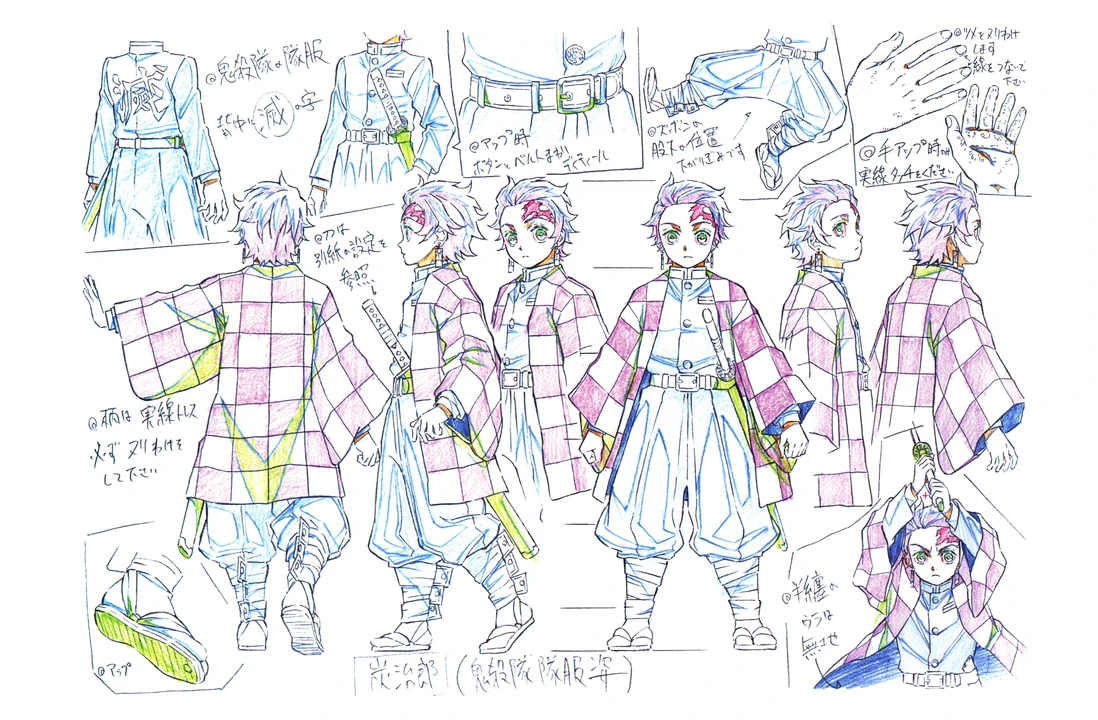 @鬼殺隊の隊服
背中に滅の字
滅
@アップ時
ボタン、ベルトまわり
ディティール
@ズボンの
股下の位置
下がりぎみです
@ツメをヌリわけ
します
線をつないで
下さい
@手アップ時のみ
実線タッチをください
@刀は
別紙の設定を
参照。
@柄は実線トレス
必ずヌリわけを
して下さい
@アップ
@半纏の
ウラは
無さセ
炭治郎(鬼殺隊隊服姿)